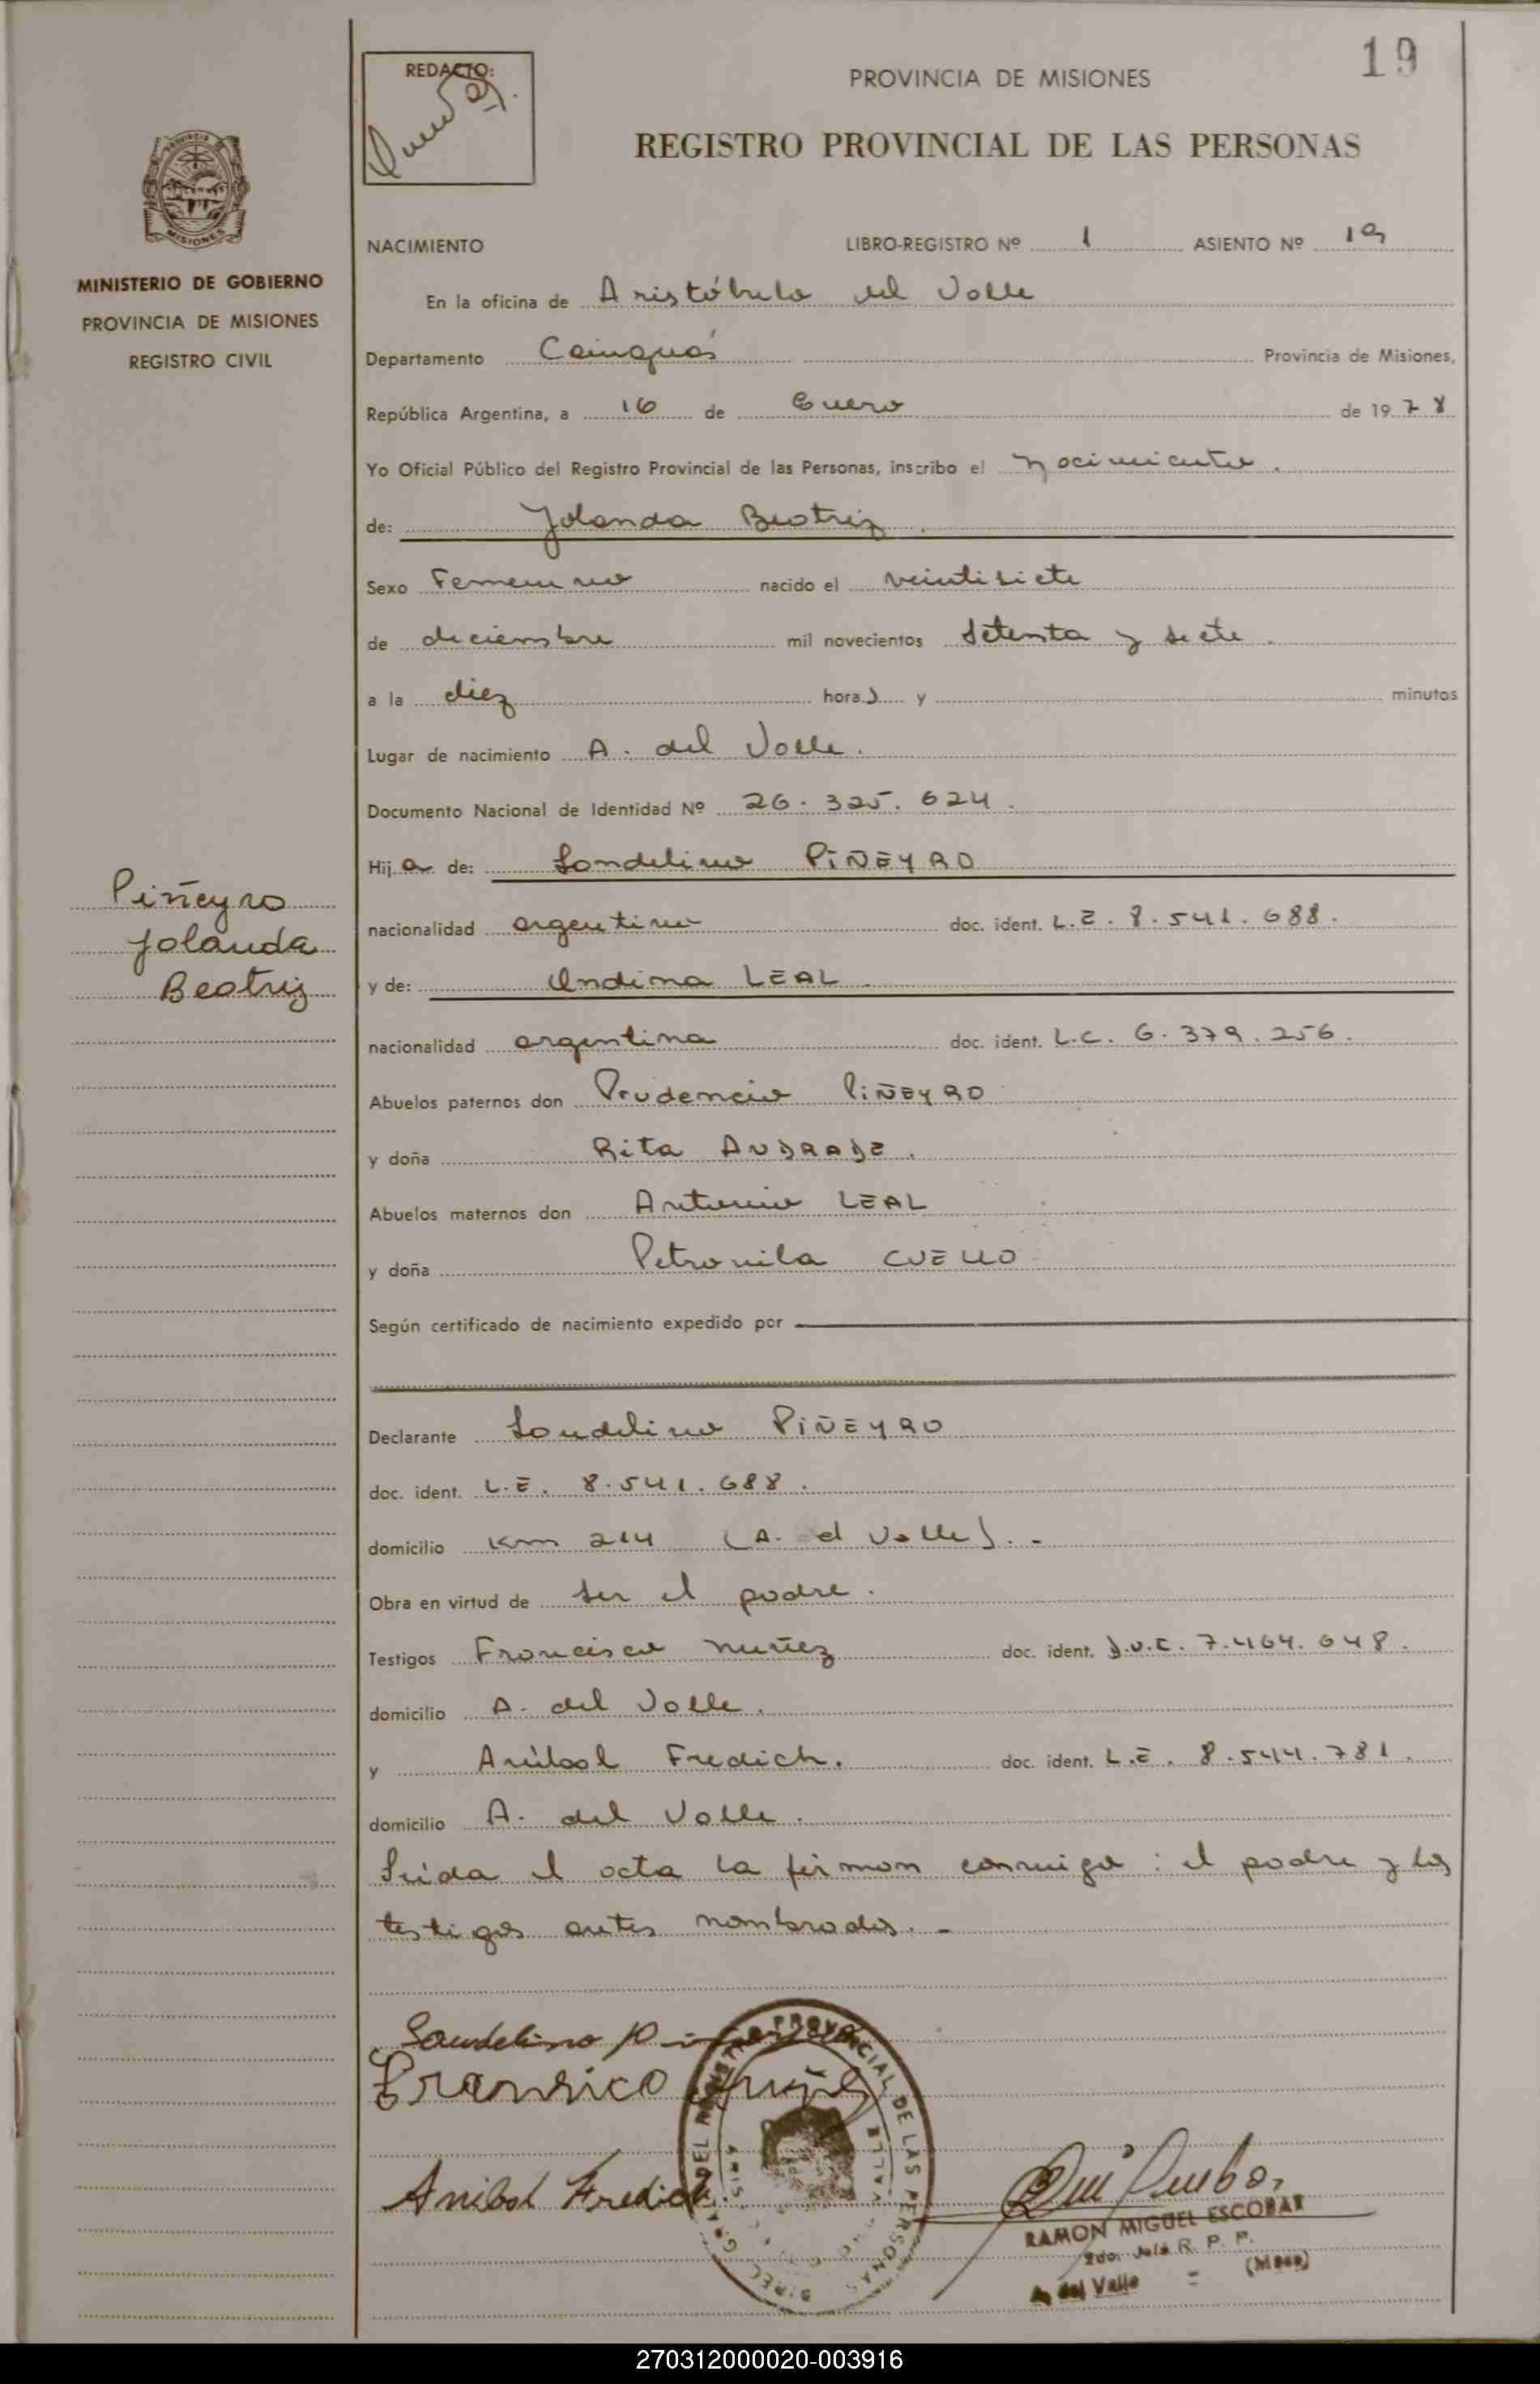 19
REDACTO:
PROVINCIA DE MISIONES
REGISTRO PROVINCIAL DE LAS PERSONAS
MISIONES
MINISTERIO DE GOBIERNO
PROVINCIA DE MISIONES
REGISTRO CIVIL
NACIMIENTO LIBRO-REGISTRO Nº 1 ASIENTO Nº 19
En la oficina de Aristóbulo del Valle
Departamento Cainguás Provincia de Misiones,
República Argentina, a 16 de Enero de 1978
Yo Oficial Público del Registro Provincial de las Personas, inscribo el nacimiento.
de: Yolanda Beatriz.
Sexo Femenino nacido el veintisiete
de diciembre mil novecientos setenta y siete.
a la diez horas y minutos
Lugar de nacimiento A. del Valle.
Documento Nacional de Identidad Nº 26.325.624.
Hija de: Londelino PIÑEYRO
nacionalidad argentino doc. ident. L.E. 8.541.688.
y de: Ondina LEAL
nacionalidad argentina doc. ident. L.C. 6.379.256.
Abuelos paternos don Prudencio PIÑEYRO
y doña Rita ANDRADE.
Abuelos maternos don Antonio LEAL
y doña Petronila CUELLO
Según certificado de nacimiento expedido por
Declarante Londelino PIÑEYRO
doc. ident. L.E. 8.541.688.
domicilio Km 214 (A. d Valle). -
Obra en virtud de ser el padre.
Testigos Francisco Nuñez doc. ident. D.N.I. 7.464.648.
domicilio A. del Valle.
y Aníbal Fredich. doc. ident. L.E. 8.544.781.
domicilio A. del Valle.
Leída el acta la firman conmigo: el padre y los
testigos antes nombrados. -
Piñeyro
Yolanda
Beatriz
Londelino
Fransico Nuñez
Anibal Fredich.
DIREC. GRAL. DEL REGISTRO PROVINCIAL DE LAS PERSONAS
RAMON MIGUEL ESCOBAR
2do. Jefe R. P. P.
A. del Valle = (Mnes)
270312000020-003916